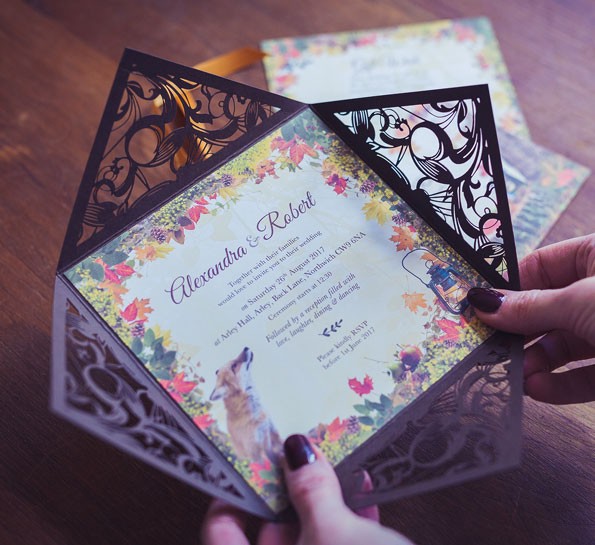 Alexandra & Robert
Together with their families
would love to invite you to their wedding
on Saturday 26th August 2017
at Arley Hall, Arley, Back Lane, Northwich CW9 6NA
Ceremony starts at 12.30
Followed by a reception filled with
love, laughter, dining & dancing
Please kindly RSVP
before 1st June 2017